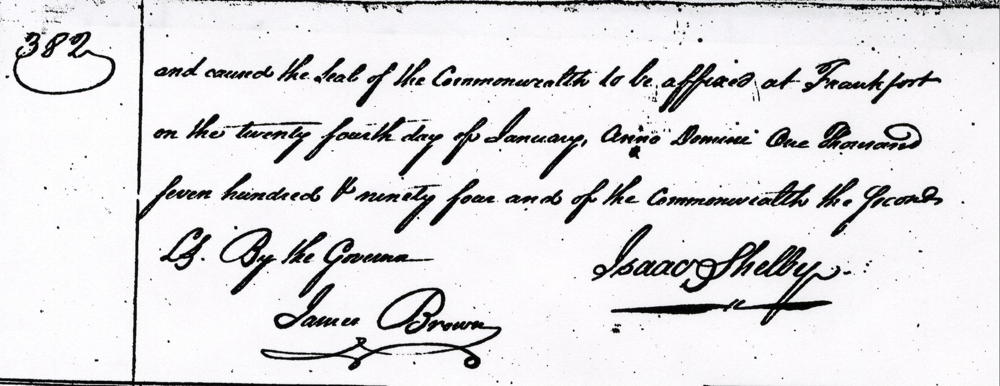 382
and caused the Seal of the Commonwealth to be affixed at Frankfort
on the twenty fourth day of January, Anno Domini One Thousand
seven hundred & ninety four and of the Commonwealth the Second
LS. By the Governor
Isaac Shelby.
James Brown